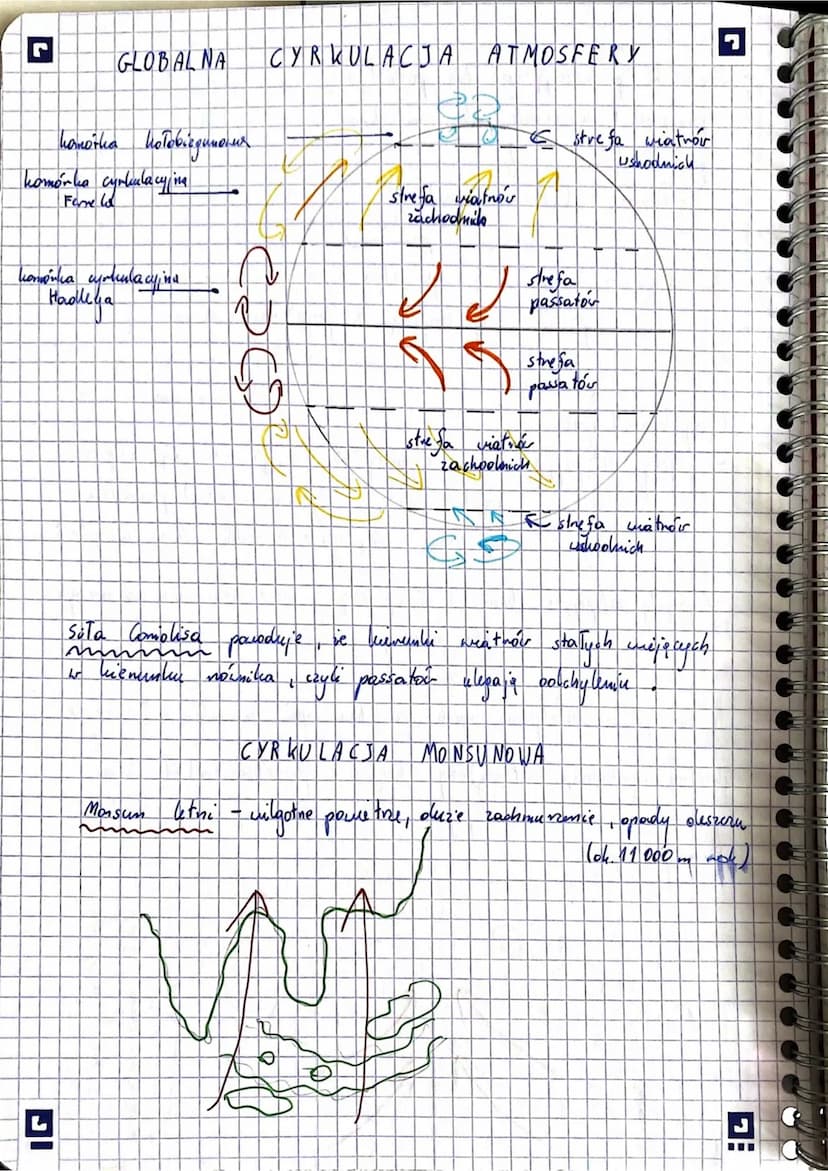 GLOBALNA CYRKULACJA ATMOSFERY
komórka kołobiegunowa
strefa wiatrów
wshodnich
komórka cyrkulacyjna
Ferrela
strefa wiatrów
zachodnich
komórka cyrkulacyjna
Hadleya
strefa
passatów
strefa
passatów
strefa wiatrów
zachodnich
strefa wiatrów
wshodnich
Siła Coriolisa powoduje, że kierunki wiatrów stałych wiejących
w kierunku równika, czyli passatów ulegają odchyleniu.
CYRKULACJA MONSUNOWA
Monsun letni - wilgotne powietrze, duże zachmurzenie, opady deszczu
(ok. 11 000 m